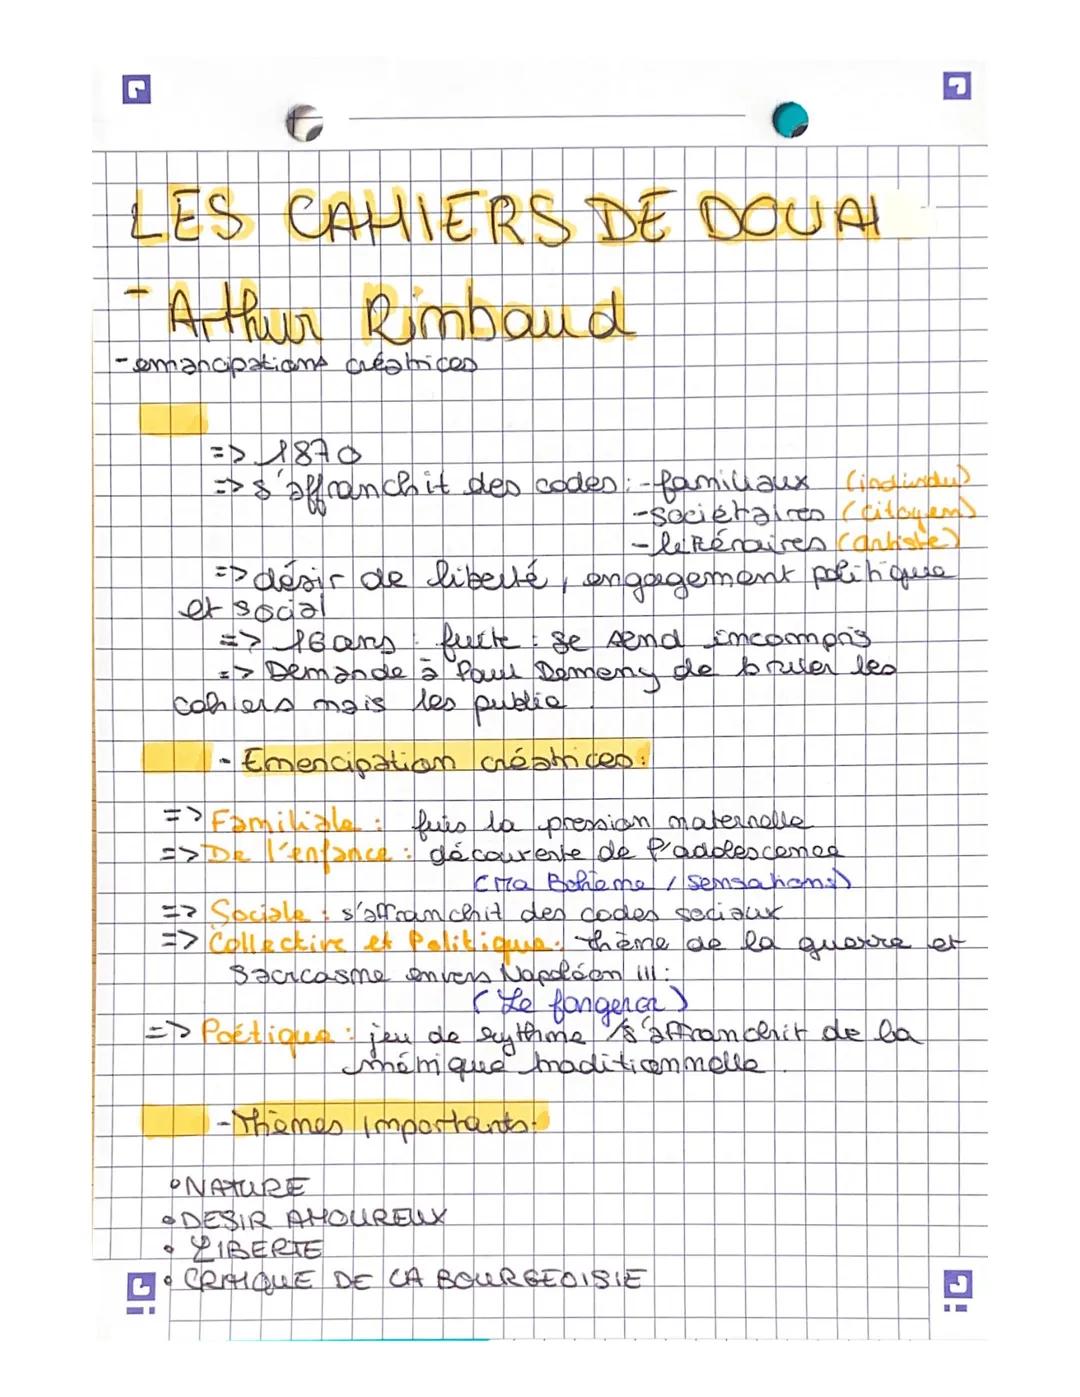 LES CAHIERS DE DOUAI
- Arthur Rimbaud
- emancipations créatrices
=> 1870
=> s'affranchit des codes : - familiaux (individu)
- sociétaires (citoyen)
- littéraires (artiste)
=> désir de liberté, engagement politique
et social
=> 16 ans : fuite : se send incompris
=> Demande à Paul Demeny de bruler les
cahiers mais les publie.
- Emencipation créatrices :
=> Familiale : fuis la pression maternelle
=> De l'enfance : découverte de l'adolescence
(Ma Bohème / sensations)
=> Sociale : s'affranchit des codes sociaux
=> Collective et Politique : thème de la guerre et
sacrcasme envers Napoléon III :
(Le fangerca)
=> Poétique : jeu de rythme / s'affranchit de la
métrique traditionnelle.
- Thèmes Importants :
• NATURE
• DESIR AMOUREUX
• LIBERTE
• CRITIQUE DE LA BOURGEOISIE